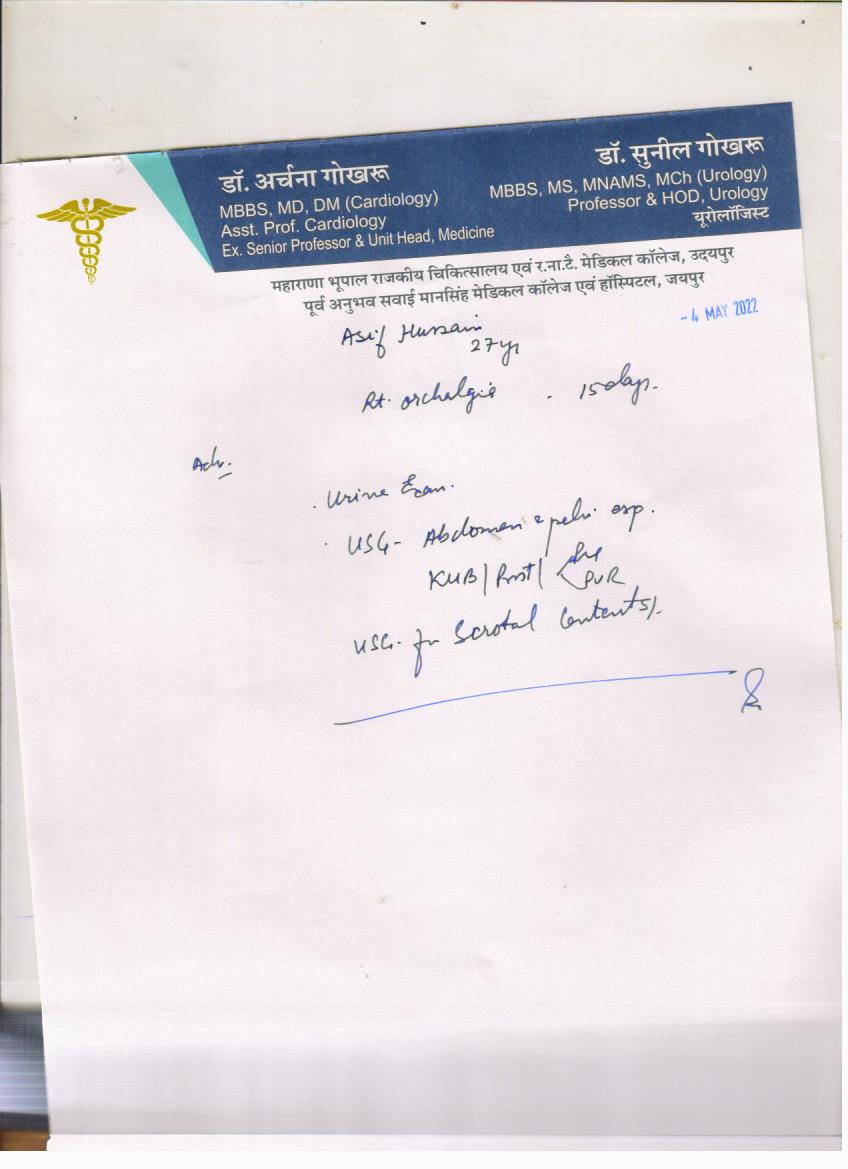 डॉ. अर्चना गोखरू
MBBS, MD, DM (Cardiology)
Asst. Prof. Cardiology
Ex. Senior Professor & Unit Head, Medicine
डॉ. सुनील गोखरू
MBBS, MS, MNAMS, MCh (Urology)
Professor & HOD, Urology
यूरोलॉजिस्ट
महाराणा भूपाल राजकीय चिकित्सालय एवं र.ना.टै. मेडिकल कॉलेज, उदयपुर
पूर्व अनुभव सवाई मानसिंह मेडिकल कॉलेज एवं हॉस्पिटल, जयपुर
- 4 MAY 2022
Asif Hussain
27 yr
Rt. orchalgia . 15 days.
Adv.
. Urine Exam.
. USG- Abdomen & pelvi esp.
KUB/Prost/
PVR
USG. for Scrotal Contents/.